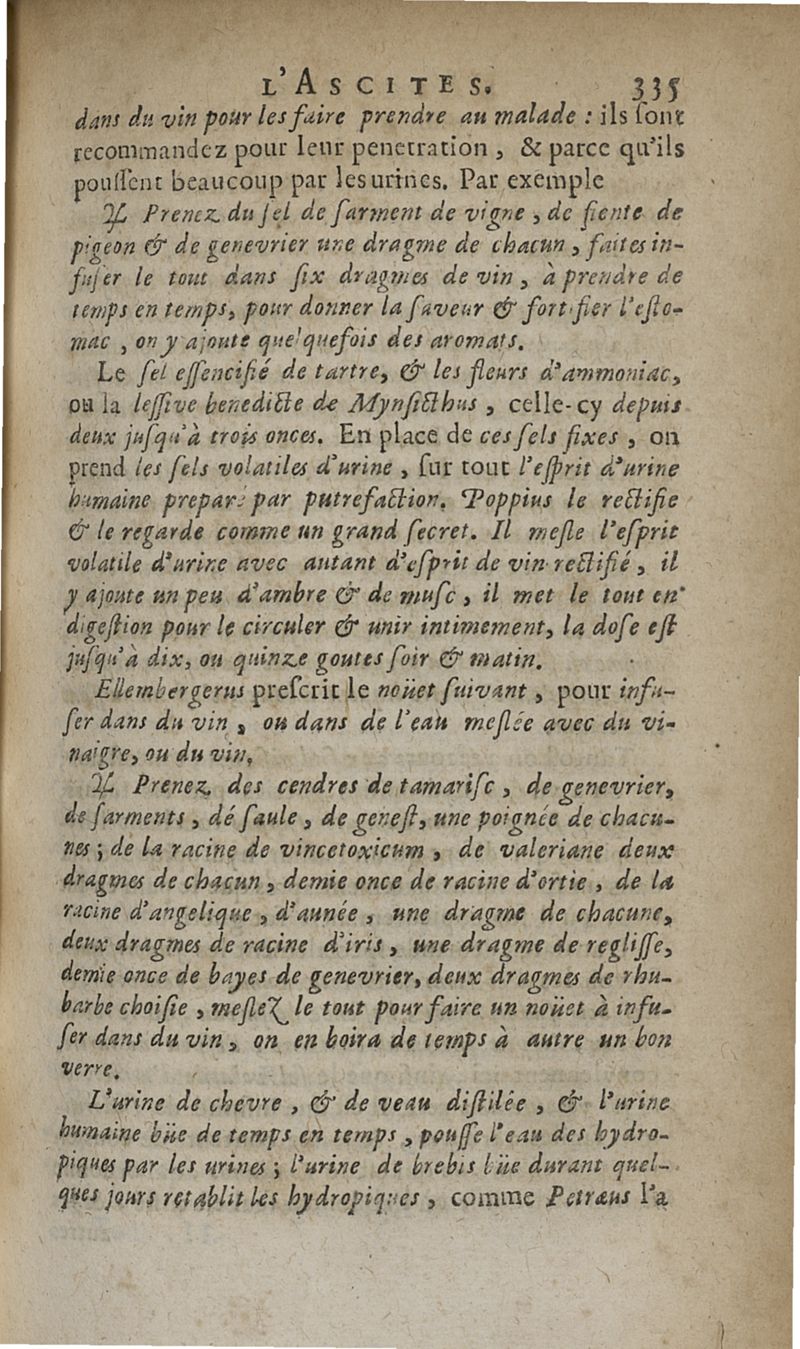 L'ASCITES. 335
dans du vin pour les faire prendre au malade : ils ſont
recommandez pour leur penetration, & parce qu'ils
pouſſent beaucoup par les urines. Par exemple
♃ Prenez du ſel de ſarment de vigne, de fiente de
pigeon & de genevrier une dragme de chacun, faites in-
fuſer le tout dans ſix dragmes de vin, à prendre de
temps en temps, pour donner la ſaveur & fortifier l'eſto-
mac, on y ajoute quelquefois des aromats.
Le ſel eſſencifié de tartre, & les fleurs d'ammoniac,
ou la leſſive benedicte de Mynſicthus, celle-cy depuis
deux juſqu'à trois onces. En place de ces ſels fixes, on
prend les ſels volatiles d'urine, ſur tout l'eſprit d'urine
humaine preparé par putrefaction. Poppius le rectifie
& le regarde comme un grand ſecret. Il meſle l'eſprit
volatile d'urine avec autant d'eſprit de vin rectifié, il
y ajoute un peu d'ambre & de muſc, il met le tout en
digeſtion pour le circuler & unir intimement, la doſe eſt
juſqu'à dix, ou quinze goutes ſoir & matin.
Ellembergerus preſcrit le noüet ſuivant, pour infu-
ſer dans du vin, ou dans de l'eau meſlée avec du vi-
naigre, ou du vin,
♃ Prenez des cendres de tamariſc, de genevrier,
de ſarments, dé ſaule, de geneſt, une poignée de chacu-
nes; de la racine de vincetoxicum, de valeriane deux
dragmes de chacun, demie once de racine d'ortie, de la
racine d'angelique, d'aunée, une dragme de chacune,
deux dragmes de racine d'iris, une dragme de regliſſe,
demie once de bayes de genevrier, deux dragmes de rhu-
barbe choiſie, meſlez le tout pour faire un noüet à infu-
ſer dans du vin, on en boira de temps à autre un bon
verre.
L'urine de chevre, & de veau diſtilée, & l'urine
humaine büe de temps en temps, pouſſe l'eau des hydro-
piques par les urines; l'urine de brebis büe durant quel-
ques jours retablit les hydropiques, comme Petræus l'a